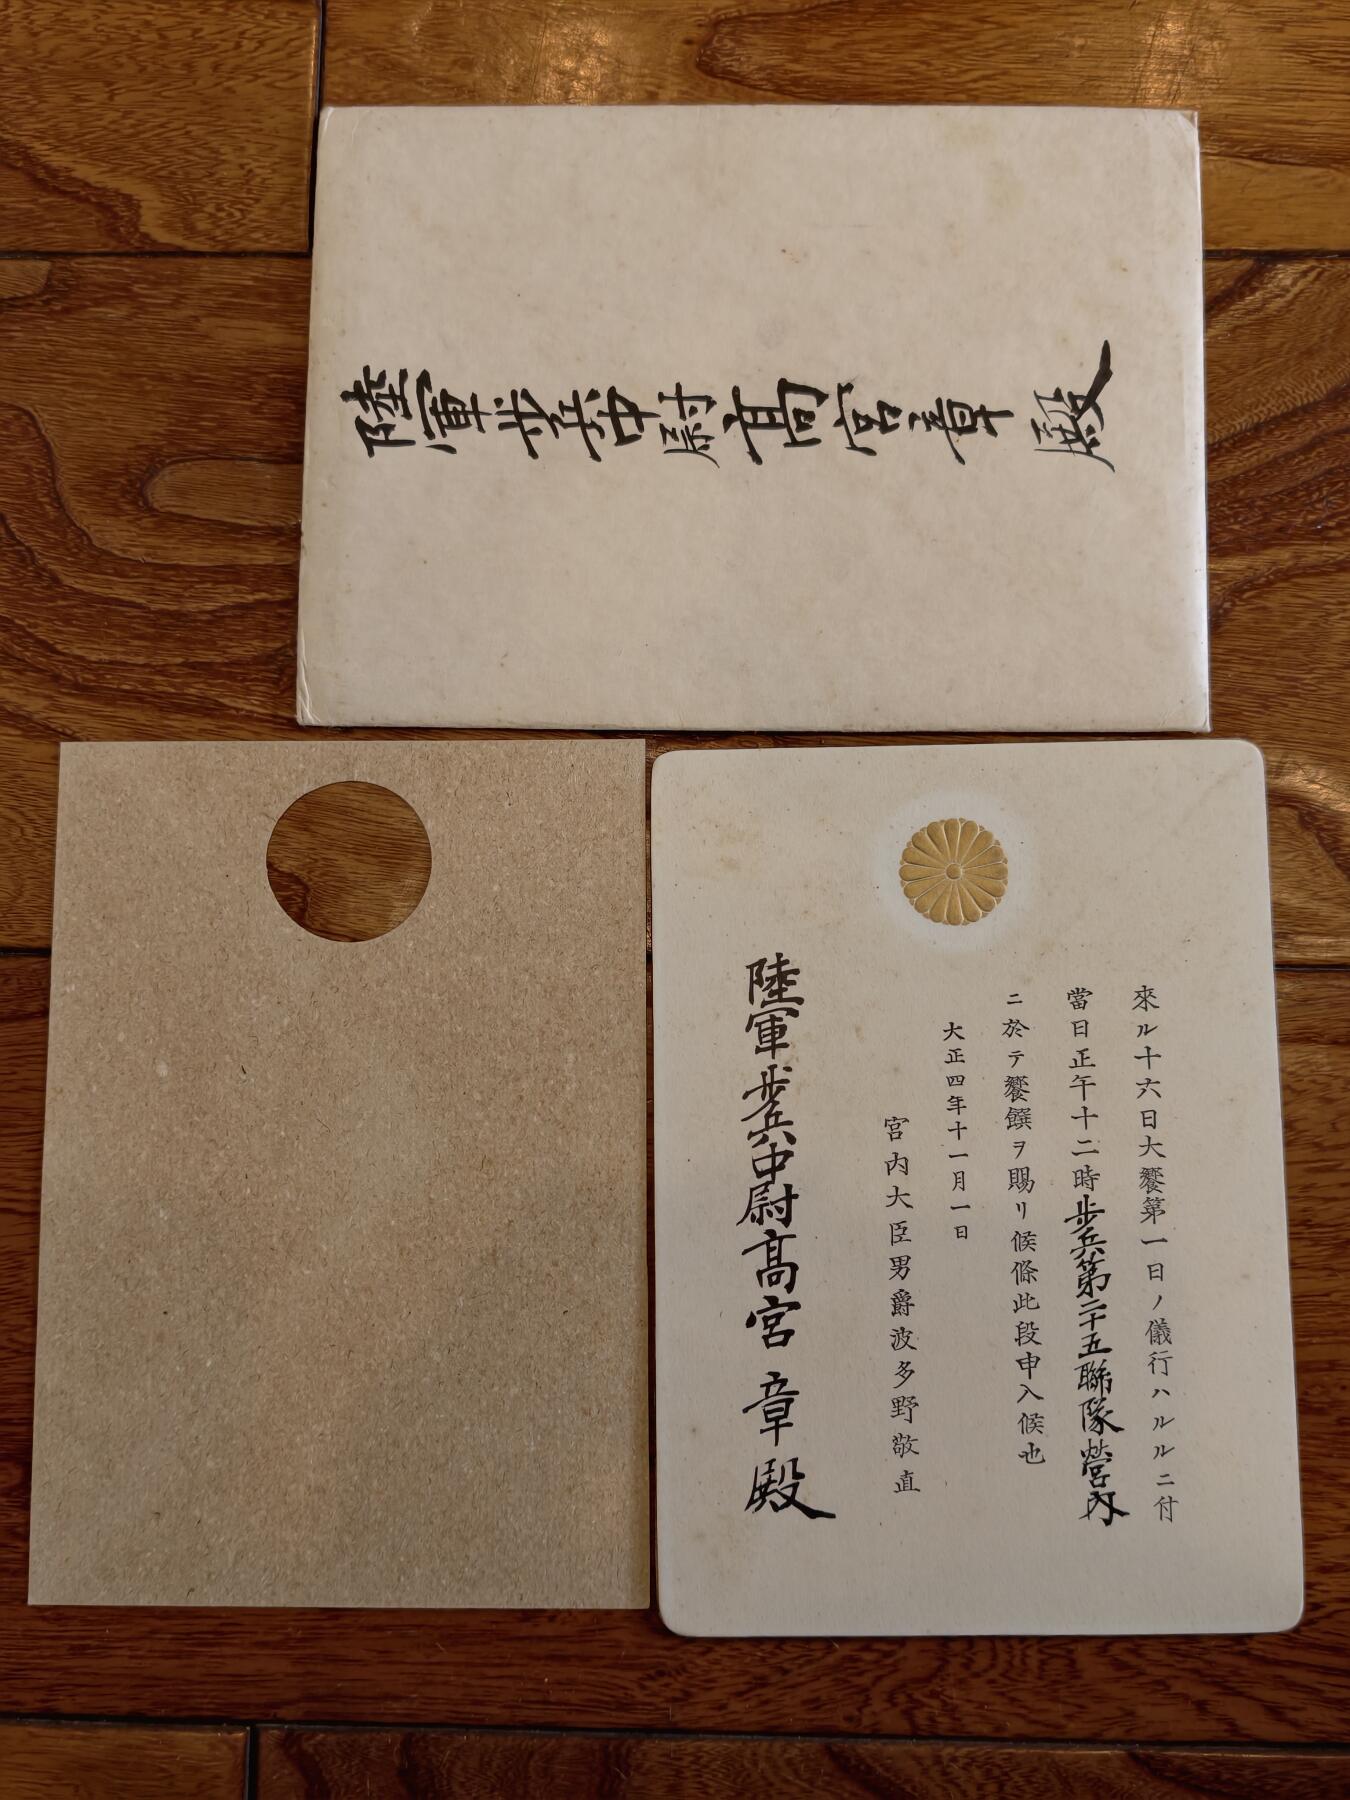 陸軍歩兵中尉高宮章殿
來ル十六日大饗第一日ノ儀行ハルルニ付
當日正午十二時歩兵第二十五聯隊營内
ニ於テ饗饌ヲ賜リ候條此段申入候也
大正四年十一月一日
宮内大臣男爵波多野敬直
陸軍歩兵中尉高宮章殿